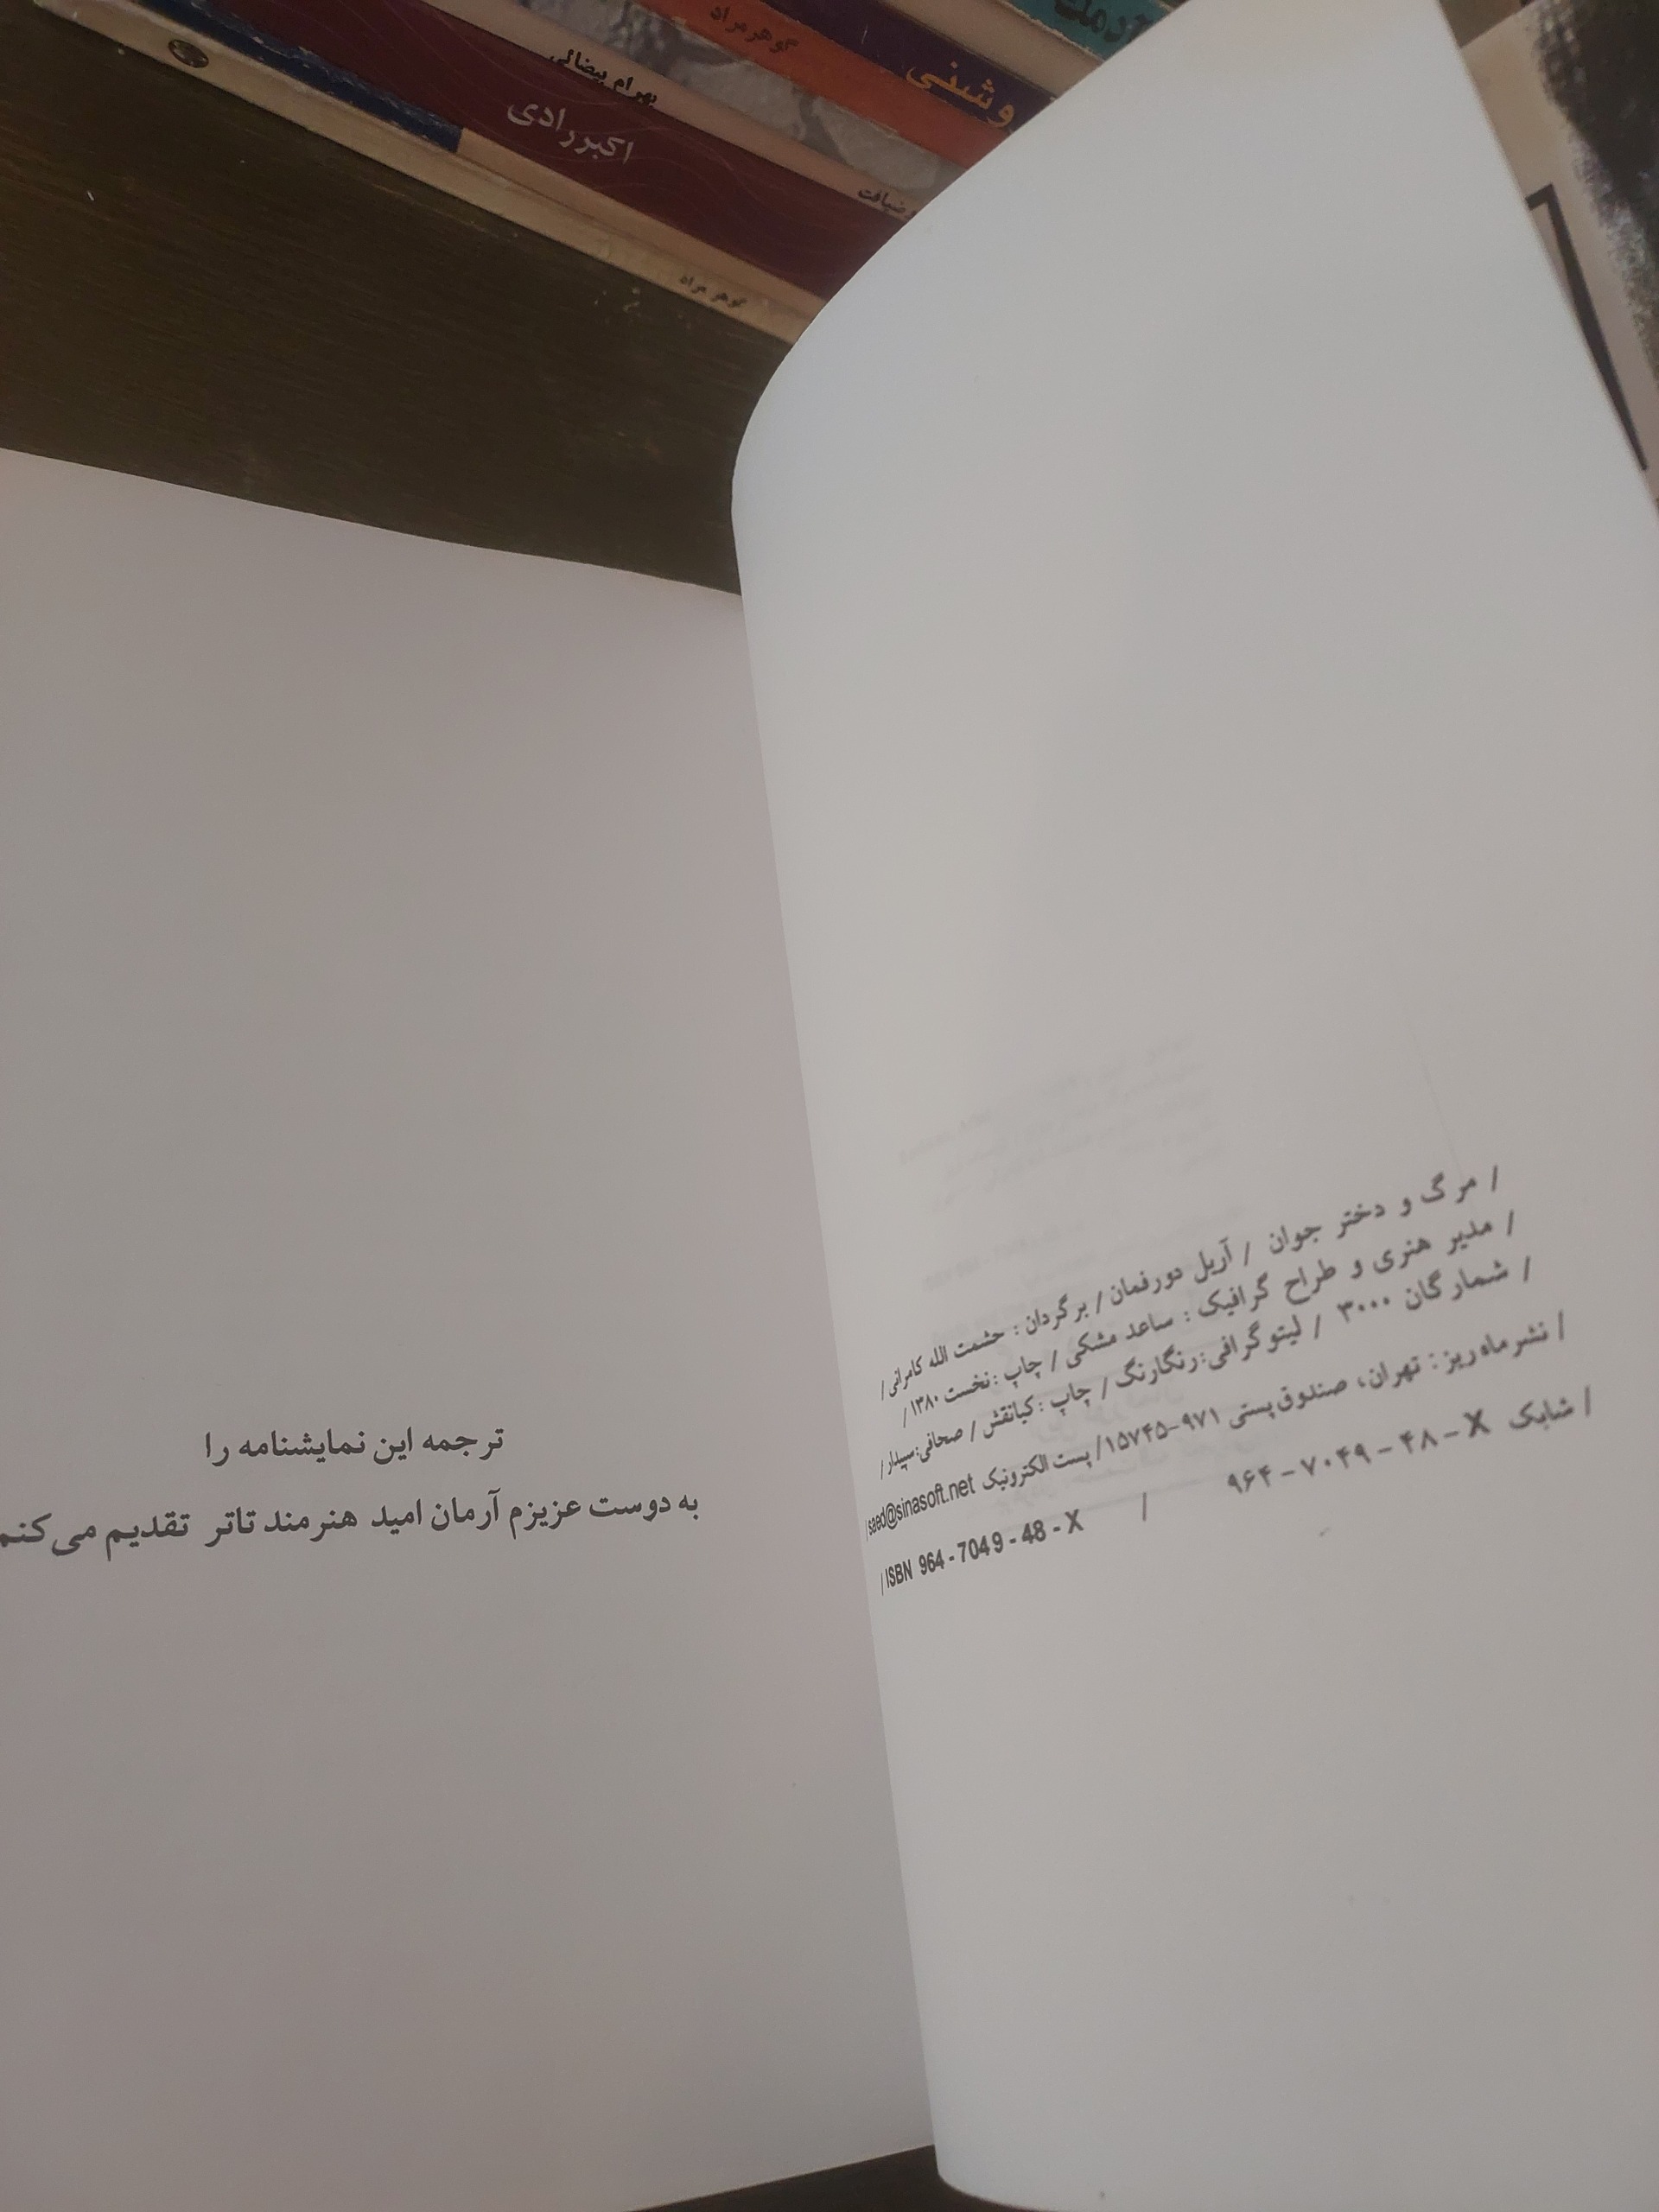 بهرام بیضائی
گوهر مراد
اکبر رادی
و ضیافت
گوهر مراد
/ مرگ و دختر جوان / آریل دورفمان / برگردان : حشمت الله کامرانی /
/ مدیر هنری و طراح گرافیک : ساعد مشکی / چاپ : نخست ۱۳۸۰ /
/ شمارگان ۳۰۰۰ / لیتوگرافی:رنگارنگ / چاپ : کیانقش / صحافی:سپیدار /
/ نشر ماه ریز : تهران، صندوق پستی ۹۷۱-۱۵۷۴۵ / پست الکترونیک saed@sinasoft.net /
/ شابک X - ۴۸ - ۷۰۴۹ - ۹۶۴ / ISBN 964 - 7049 - 48 - X /
ترجمه این نمایشنامه را
به دوست عزیزم آرمان امید هنرمند تاتر تقدیم می‌کنم